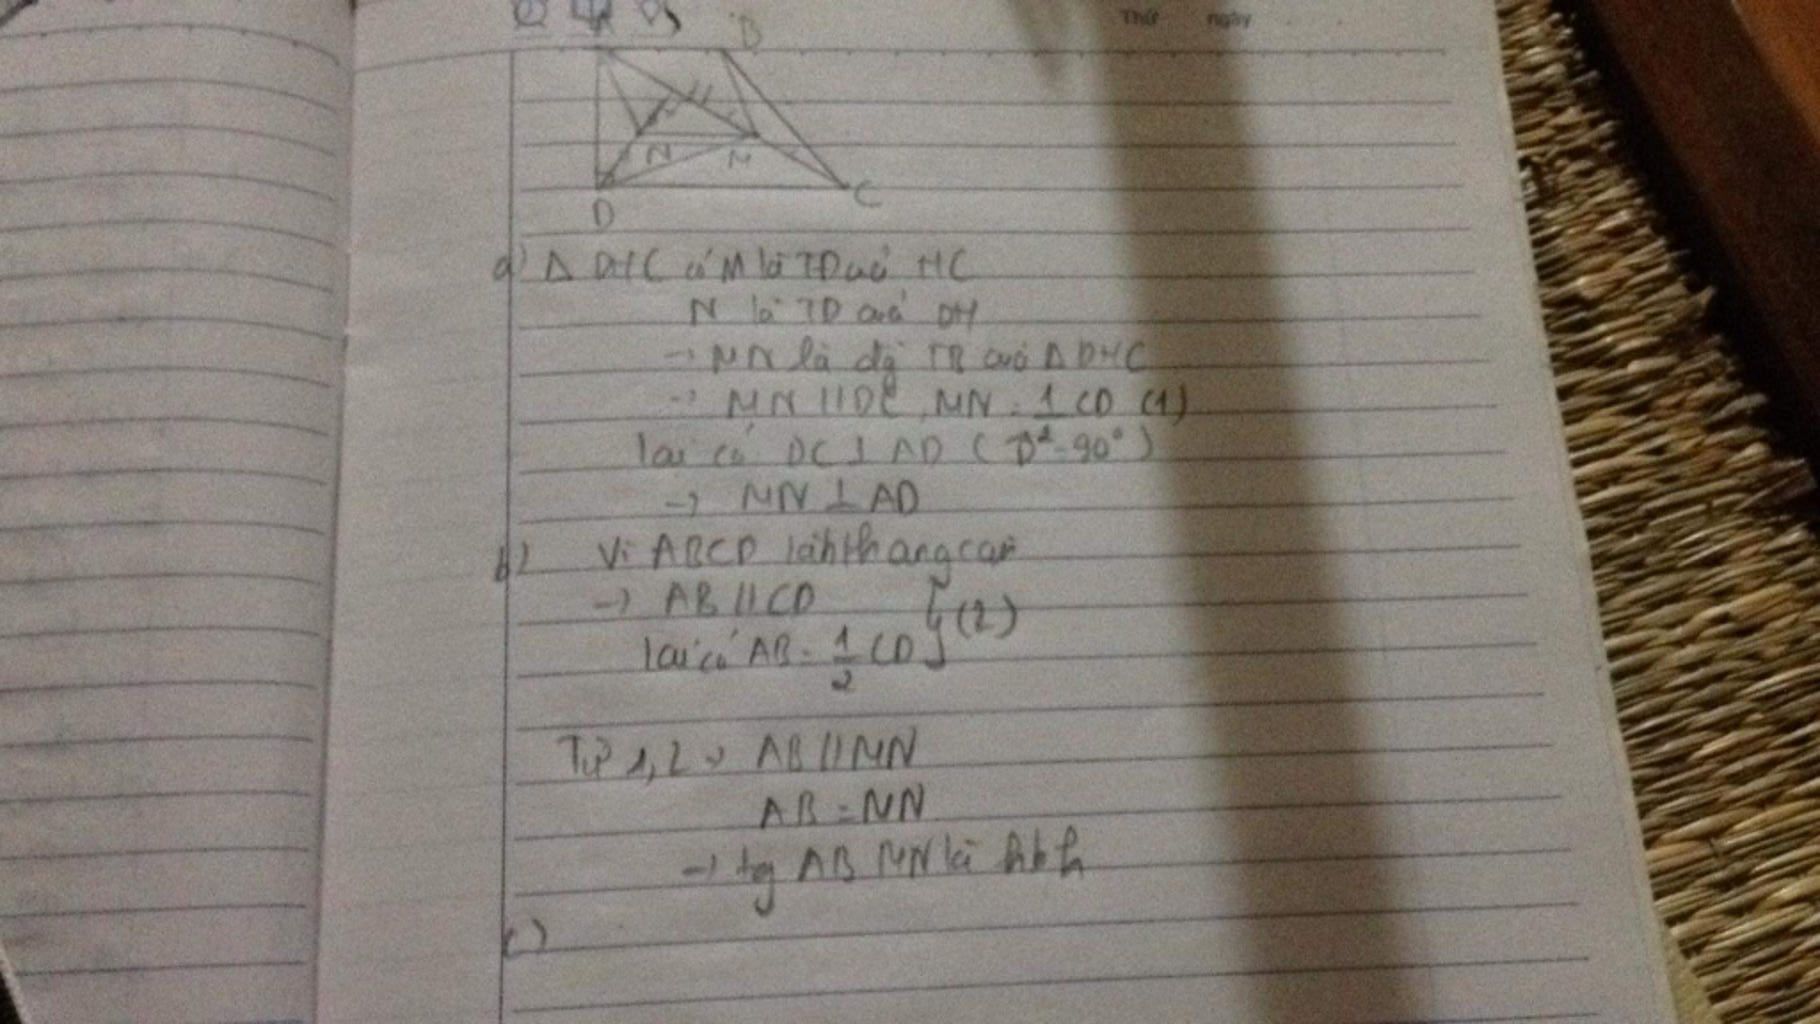 Thứ ngày
B
N M
C
D
a) Δ DHC có M là TD của HC
N là TD của DH
→ MN là đg TB của Δ DHC
→ MN // DC, MN = 1/2 CD (1)
lại có DC ⊥ AD ( = 90°)
→ MN ⊥ AD
b) Vì ABCD là hthang
→ AB // CD
lại có AB = 1/2 CD } (2)
Từ 1, 2 → AB // MN
AB = MN
→ tg ABMN là hbh
c)